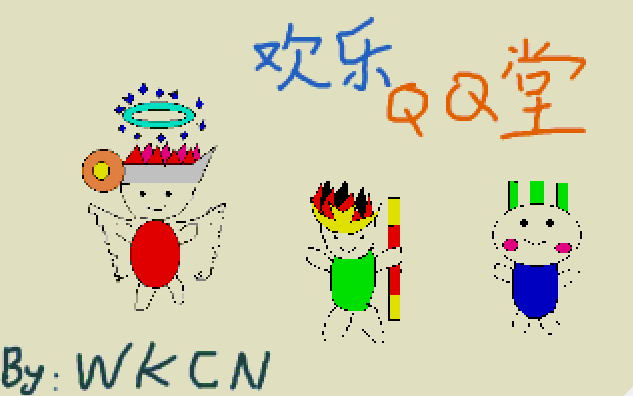 欢乐QQ堂
By: WKCN